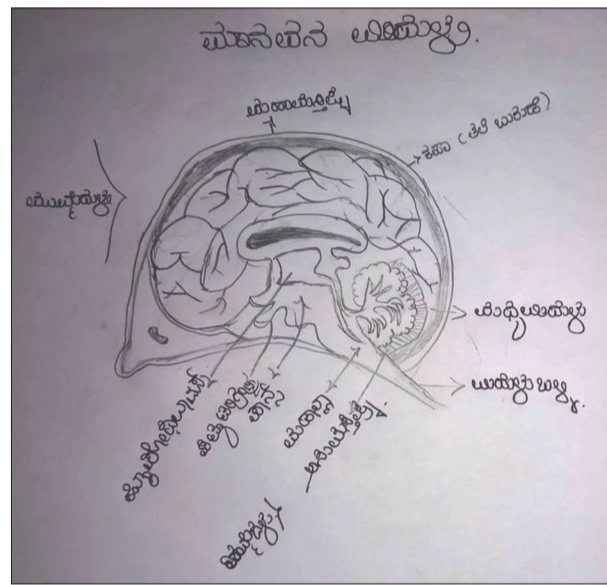 ಮಾನವನ ಮಿದುಳು.
ಮಹಾಮಸ್ತಿಷ್ಕ
ಕಪಾಲ (ತಲೆ ಬುರುಡೆ)
ಮುಮ್ಮೆದುಳು
ಮಧ್ಯ ಮಿದುಳು
ಮಿದುಳು ಬಳ್ಳಿ.
ಹೈಪೋಥಲಾಮಸ್
ಪಾನ್ಸ್
ಮೆಡುಲ್ಲಾ
ಅನುಮಸ್ತಿಷ್ಕ
ಹಿಮ್ಮೆದುಳು